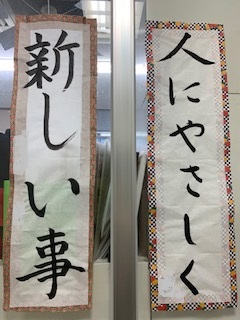 新しい事
人にやさしく